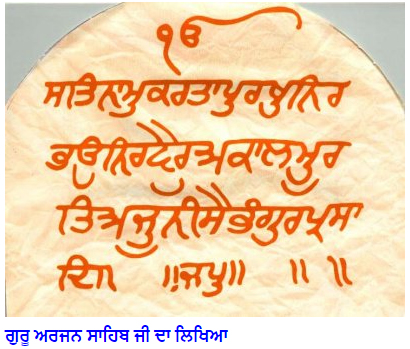 ੴ
ਸਤਿਨਾਮੁਕਰਤਾਪੁਰਖੁਨਿਰ
ਭਉਨਿਰਵੈਰੁਅਕਾਲਮੂਰ
ਤਿਅਜੂਨੀਸੈਭੰਗੁਰਪ੍ਰਸਾ
ਦਿ॥ ॥ਜਪੁ॥ ॥ ॥
ਗੁਰੂ ਅਰਜਨ ਸਾਹਿਬ ਜੀ ਦਾ ਲਿਖਿਆ